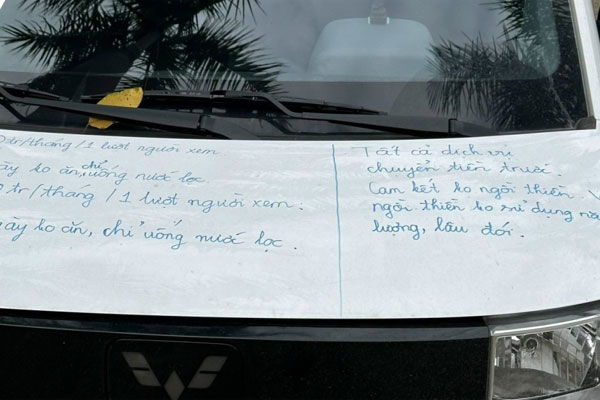 tr/tháng/1 lượt người xem
ko ăn, chỉ uống nước lọc
tr/tháng/1 lượt người xem.
ko ăn, chỉ uống nước lọc.
Tất cả dịch vụ
chuyển tiền trước.
Cam kết ko ngồi thiền
ngồi thiền ko sử dụng
lượng, lâu đói.